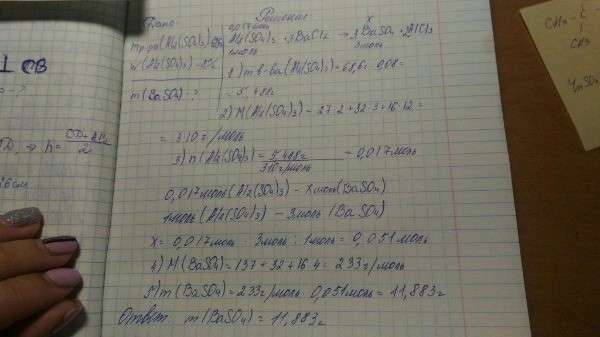 Дано
Решение
mр-ра(Al₂(SO₄)₃)
0,017моль
x
Al₂(SO₄)₃ + 3BaCl₂ → 3BaSO₄ + 2AlCl₃
1моль
3моль
W(Al₂(SO₄)₃) - 8%
1) m в-ва(Al₂(SO₄)₃) = 68,6г · 0,08 =
m(BaSO₄) - ?
= 5,488г
2) M(Al₂(SO₄)₃) - 27·2 + 32·3 + 16·12 =
= 310г/моль
3) n(Al₂(SO₄)₃) = 5,488г / 310г/моль - 0,017моль
0,017моль(Al₂(SO₄)₃) - Xмоль(BaSO₄)
1моль(Al₂(SO₄)₃) - 3моль(BaSO₄)
X = 0,017моль · 3моль : 1моль = 0,051моль
4) M(BaSO₄) = 137 + 32 + 16·4 = 233г/моль
5) m(BaSO₄) = 233г/моль · 0,051моль = 11,883г
Ответ: m(BaSO₄) = 11,883г
⊥ CB
⇒ h =
2
6см
CH₃ - C
CH₃